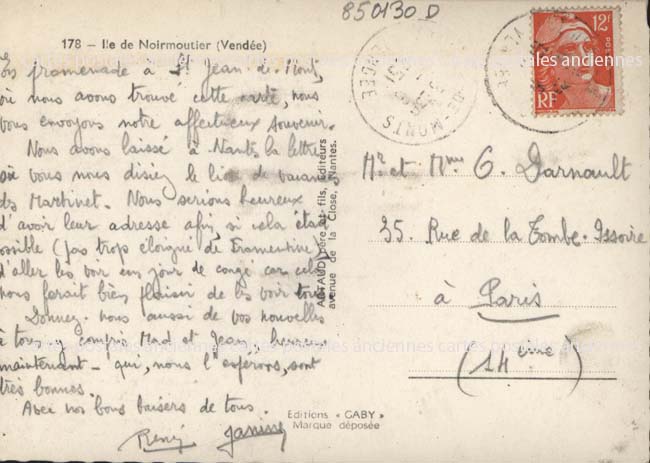 850130 D
178 — Ile de Noirmoutier (Vendée)
En promenade à St Jean-de-Mont,
où nous avons trouvé cette carte, nous
vous envoyons notre affectueux souvenir.
Nous avons laissé à Nantes la lettre
où vous nous disiez le lieu de vacances
des Martinet. Nous serions heureux
d'avoir leur adresse afin, si cela était
possible (pas trop éloigné de Fromentine)
d'aller les voir un jour de congé car cela
nous ferait bien plaisir de les voir tous.
Donnez-nous aussi de vos nouvelles
à tous y compris Mad et Jean, heureux
maintenant - qui, nous l'espérons, sont
très bonnes.
Avec nos bons baisers de tous.
René Janine
ARTAUD père et fils, Editeurs
avenue de la Close, Nantes.
Editions « GABY »
Marque déposée
DE-MONTS
VENDÉE
12F
POSTES
RF
Mr et Mme G. Darnault
35. Rue de la Tombe-Issoire
à Paris
(14ème)
cartes postales anciennes cartes postales anciennes